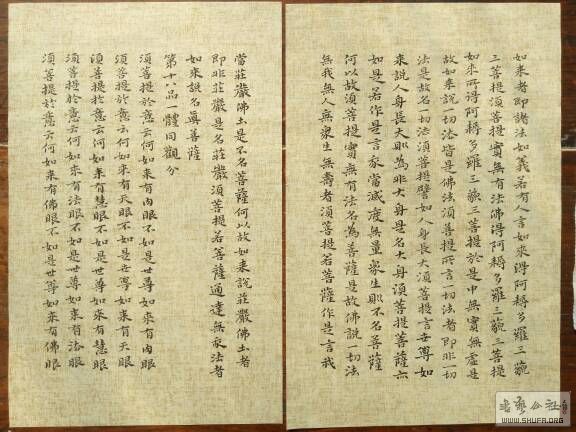 如来者即諸法如義若有人言如来得阿耨多羅三藐
三菩提須菩提實無有法佛得阿耨多羅三藐三菩提
如来所得阿耨多羅三藐三菩提於是中無實無虛是
故如来說一切法皆是佛法須菩提所言一切法者即非一切
法是故名一切法須菩提譬如人身長大須菩提言世尊如
来說人身長大即為非大身是名大身須菩提菩薩亦
如是若作是言我當滅度無量衆生即不名菩薩
何以故須菩提實無有法名為菩薩是故佛說一切法
無我無人無衆生無壽者須菩提若菩薩作是言我
當莊嚴佛土是不名菩薩何以故如来說莊嚴佛土者
即非莊嚴是名莊嚴須菩提若菩薩通達無我法者
如来說名真菩薩
第十八品一體同觀分
須菩提於意云何如来有肉眼不如是世尊如来有肉眼
須菩提於意云何如来有天眼不如是世尊如来有天眼
須菩提於意云何如来有慧眼不如是世尊如来有慧眼
須菩提於意云何如来有法眼不如是世尊如来有法眼
須菩提於意云何如来有佛眼不如是世尊如来有佛眼
WWW.SHUFA.ORG